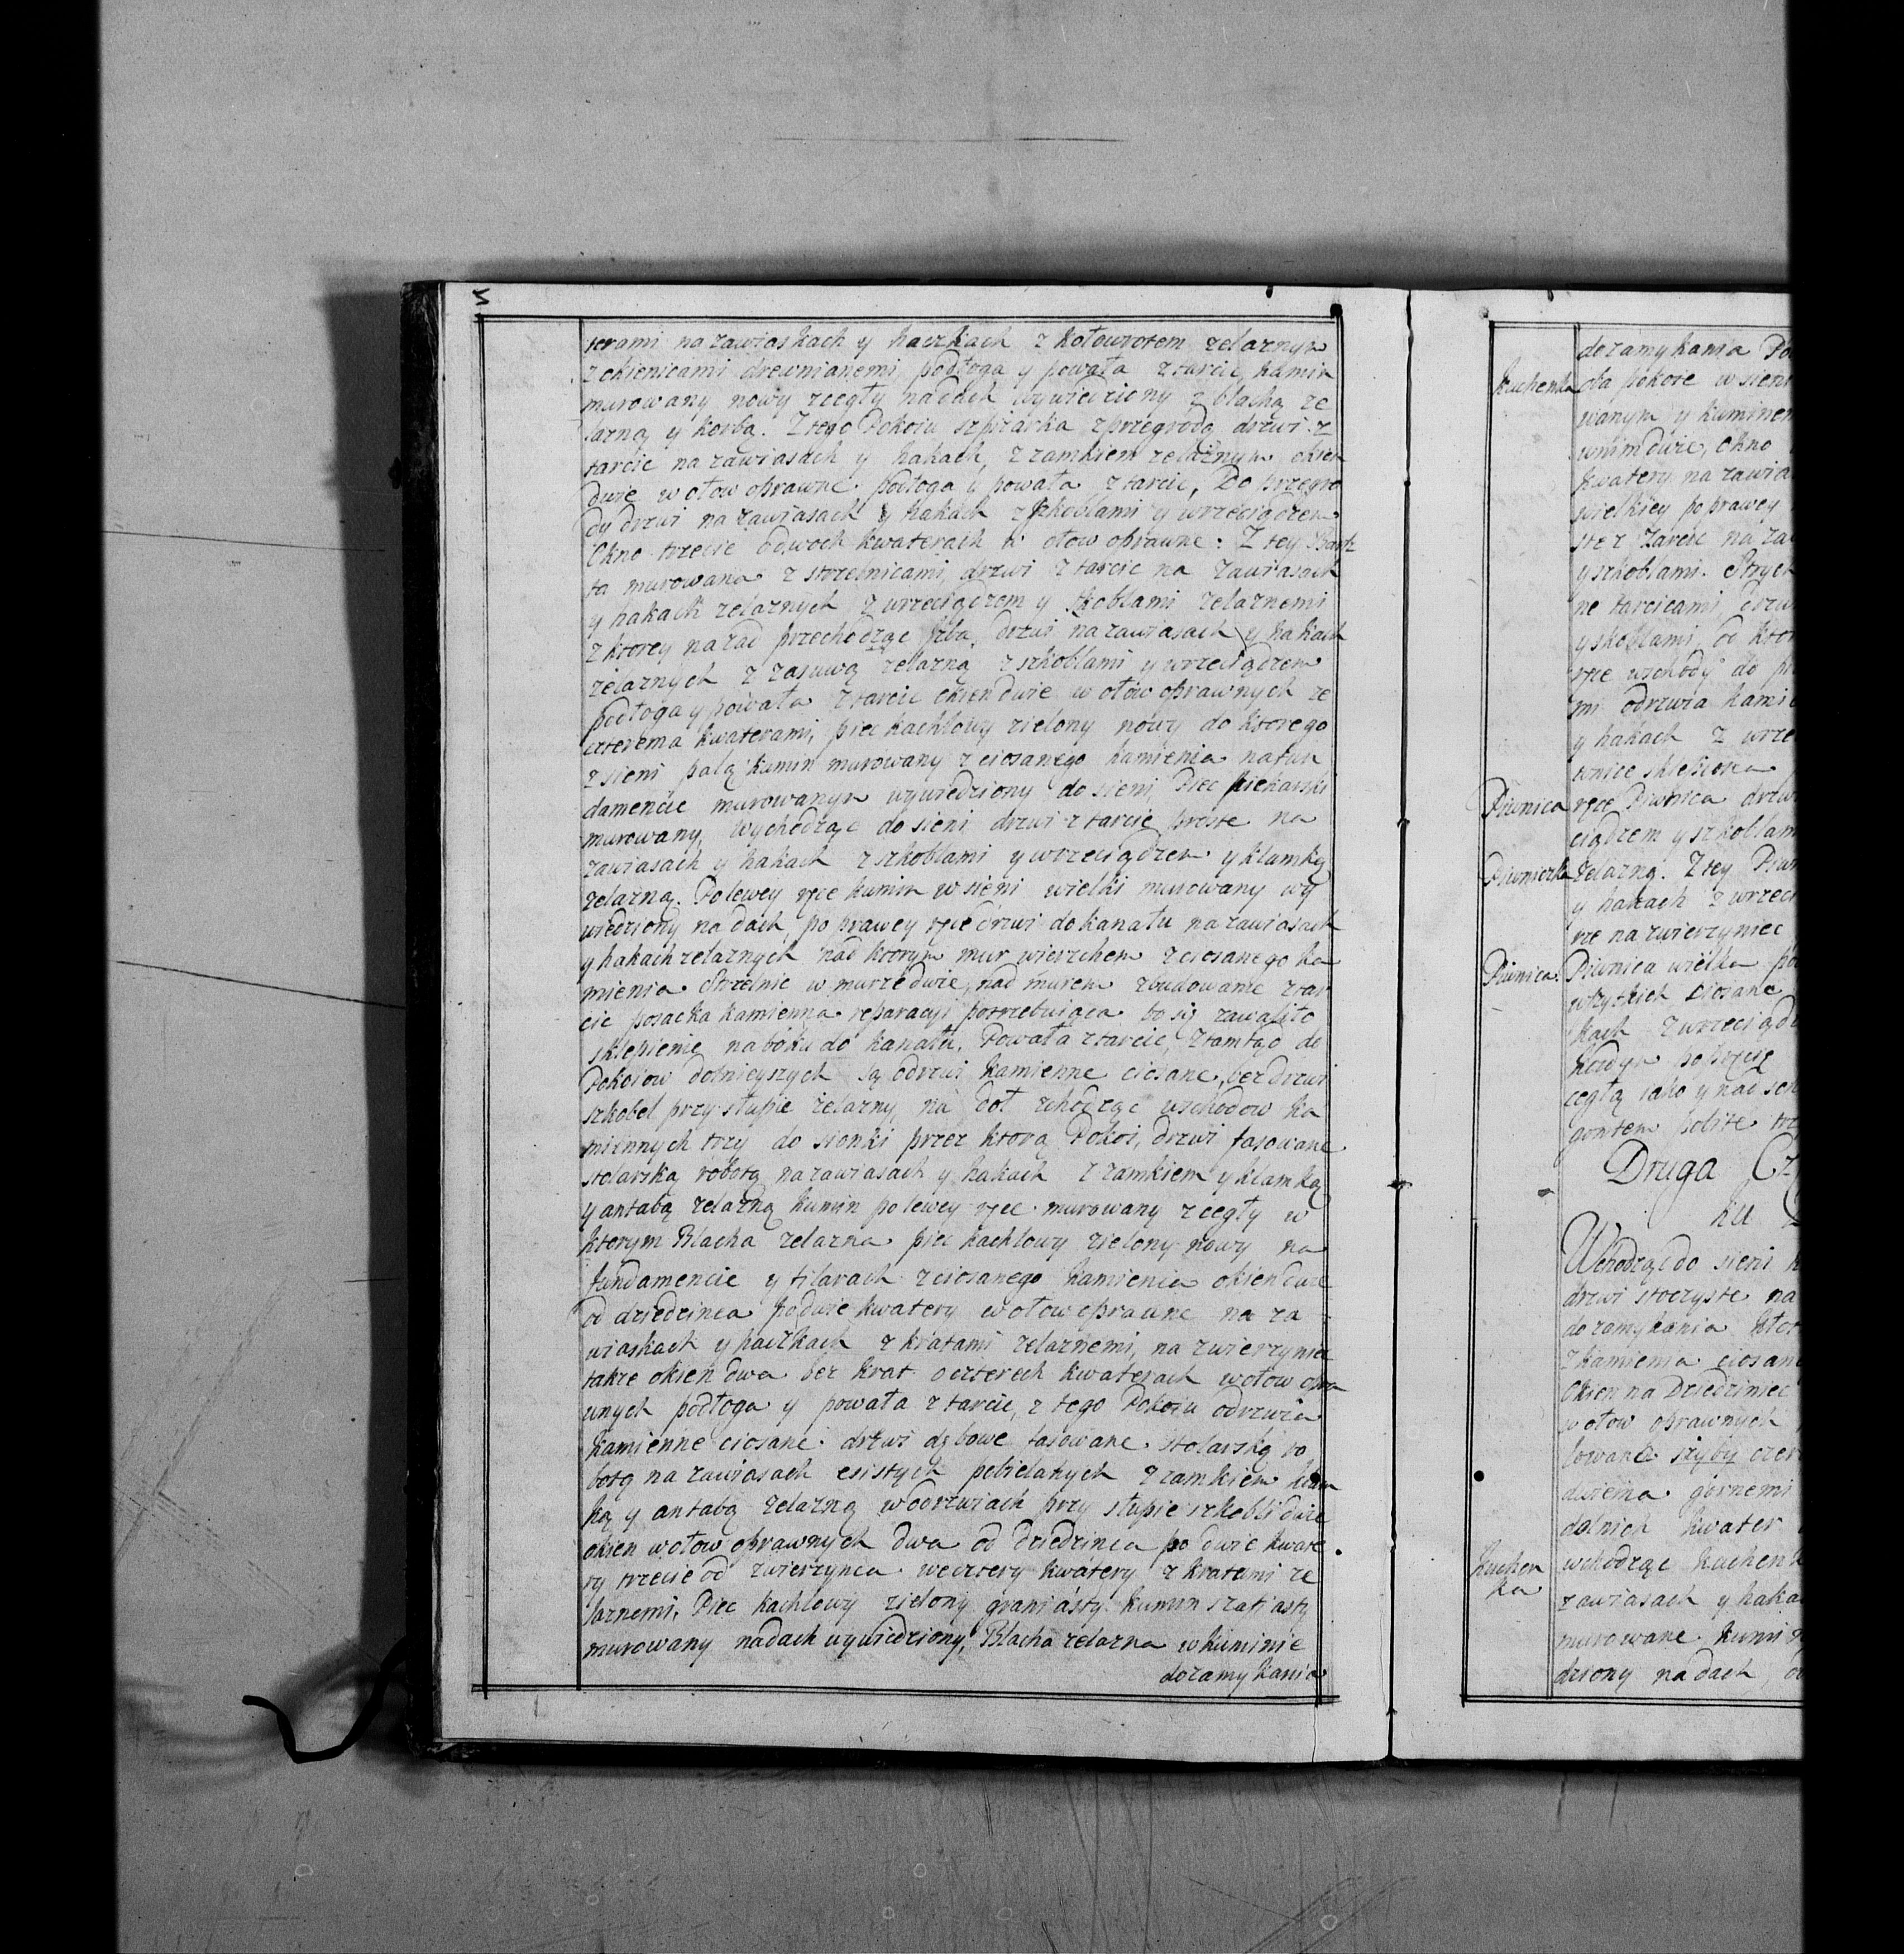 5
terami na zawiaskach y haczkach z kołowrotem zelaznym
z okienicami drewnianemi podłoga y powała z tarcic, kamin
murowany nowy z cegły na dach wywiedziony z blachą ze
lazną y korbą. Z tego Pokoiu szpizarka z przegrodą drzwi z
tarcic na zawiasach y hakach, z zamkiem zelaznym okien
dwie w ołow oprawne podłoga y powała z tarcic, Do przegro
dy drzwi na zawiasach y hakach z szkoblami y wrzeciądzem
Okno trzecie o dwoch kwaterach w ołow oprawne: Z tey Baszt
ta murowana z strzelnicami, drzwi z tarcic na zawiasach
y hakach zelaznych z wrzeciądzem y szkoblami zelaznemi
z ktorey nazad przechodząc Izba, drzwi na zawiasach y hakach
zelaznych z zasuwą zelazną z szkoblami y wrzeciądzem
podłoga y powała z tarcic okien dwie w ołow oprawnych ze
czterema kwaterami, piec kachlowy zielony nowy do ktorego
z sieni palą kumin murowany z ciosanego kamienia na fun
damencie murowanym wywiedziony do sieni, Piec piekarski
murowany, wychodząc do sieni drzwi z tarcic proste na
zawiasach y hakach z szkoblami y wrzeciądzem y klamką
zelazną. Po lewey ręce kumin w sieni wielki murowany wy
wiedziony na dach, po prawey ręce drzwi do kanału na zawiasach
y hakach zelaznych nad ktorym mur wierzchem z ciosanego ka
mienia. Strzelnic w murze dwie, nad murem zbudowanie z tar
cic posacka kamienna reparacyi potrzebuiąca bo się zawaliło
sklepienie na boku do kanału. Powała z tarcic, Ztamtąd do
Pokoiow dolnieyszych są odrzwi kamienne ciosane, bez drzwi
szkobel przy słupie zelazny, na doł zchodząc wschodow ka
miennych trzy do sionki przez ktorą Pokoi, drzwi fasowane
stolarską robotą na zawiasach y hakach z zamkiem y klamką
y antabą zelazną kumin po lewey ręce murowany z cegły w
ktorym Blacha zelazna piec kachlowy zielony nowy na
fundamencie y filarach z ciosanego kamienia okien dwie
od dziedzinca po dwie kwatery w ołow oprawne na za
wiaskach y haczkach z kratami zelaznemi, na zwierzyniec
takze okien dwa bez krat o czterech kwaterach w ołow opra
wnych podłoga y powała z tarcic, z tego Pokoiu odrzwia
kamienne ciosane drzwi dębowe fasowane stolarską ro
botą na zawiasach esistych pobielanych z zamkiem klam
ką y antabą zelazną w odrzwiach przy słupie szkobli dwie
okien w ołow oprawnych dwa od dziedzinca po dwie kwate
ry trzecie od zwierzynca we cztery kwatery z kratami ze
laznemi, Piec kachlowy zielony graniasty kumin szafiasty
murowany na dach wywiedziony, Blacha zelazna w kuminie
do zamykania
do zamykania
Kuchenka oba pokoie w sieni
wanym y kuminem
w nim dwie, Okno
kwatery na zawia
wielkiey po prawey
ste z tarcic na za
y szkoblami. Strych
ne tarcicami, drzwi
y skoblami, od ktor
ręce wschody do
mi odrzwia kami
y hakach z wrze
wnice sklepiona
Piwnica ręce Piwnica drzwi
ciądzem y szkoblam
Piwniczka zelazną. Z tey Piwn
y hakach z wrzeci
rze na zwierzyniec
Piwnica. Piwnica wielka
wszytkich ciosane
kach z wrzeciądz
cegłą iako y nad
gontem pobite
Druga Cz
ku
Wchodząc do sieni
drzwi stoczyste na
do zamykania
z kamienia ciosan
Okien na Dziedziniec
w ołow oprawnych
lowane szyby
dwiema gornemi
dolnich kwater
wchodząc kuchenk
Kuchen
ka
zawiasach y haka
murowane kumin
dziony na dach,